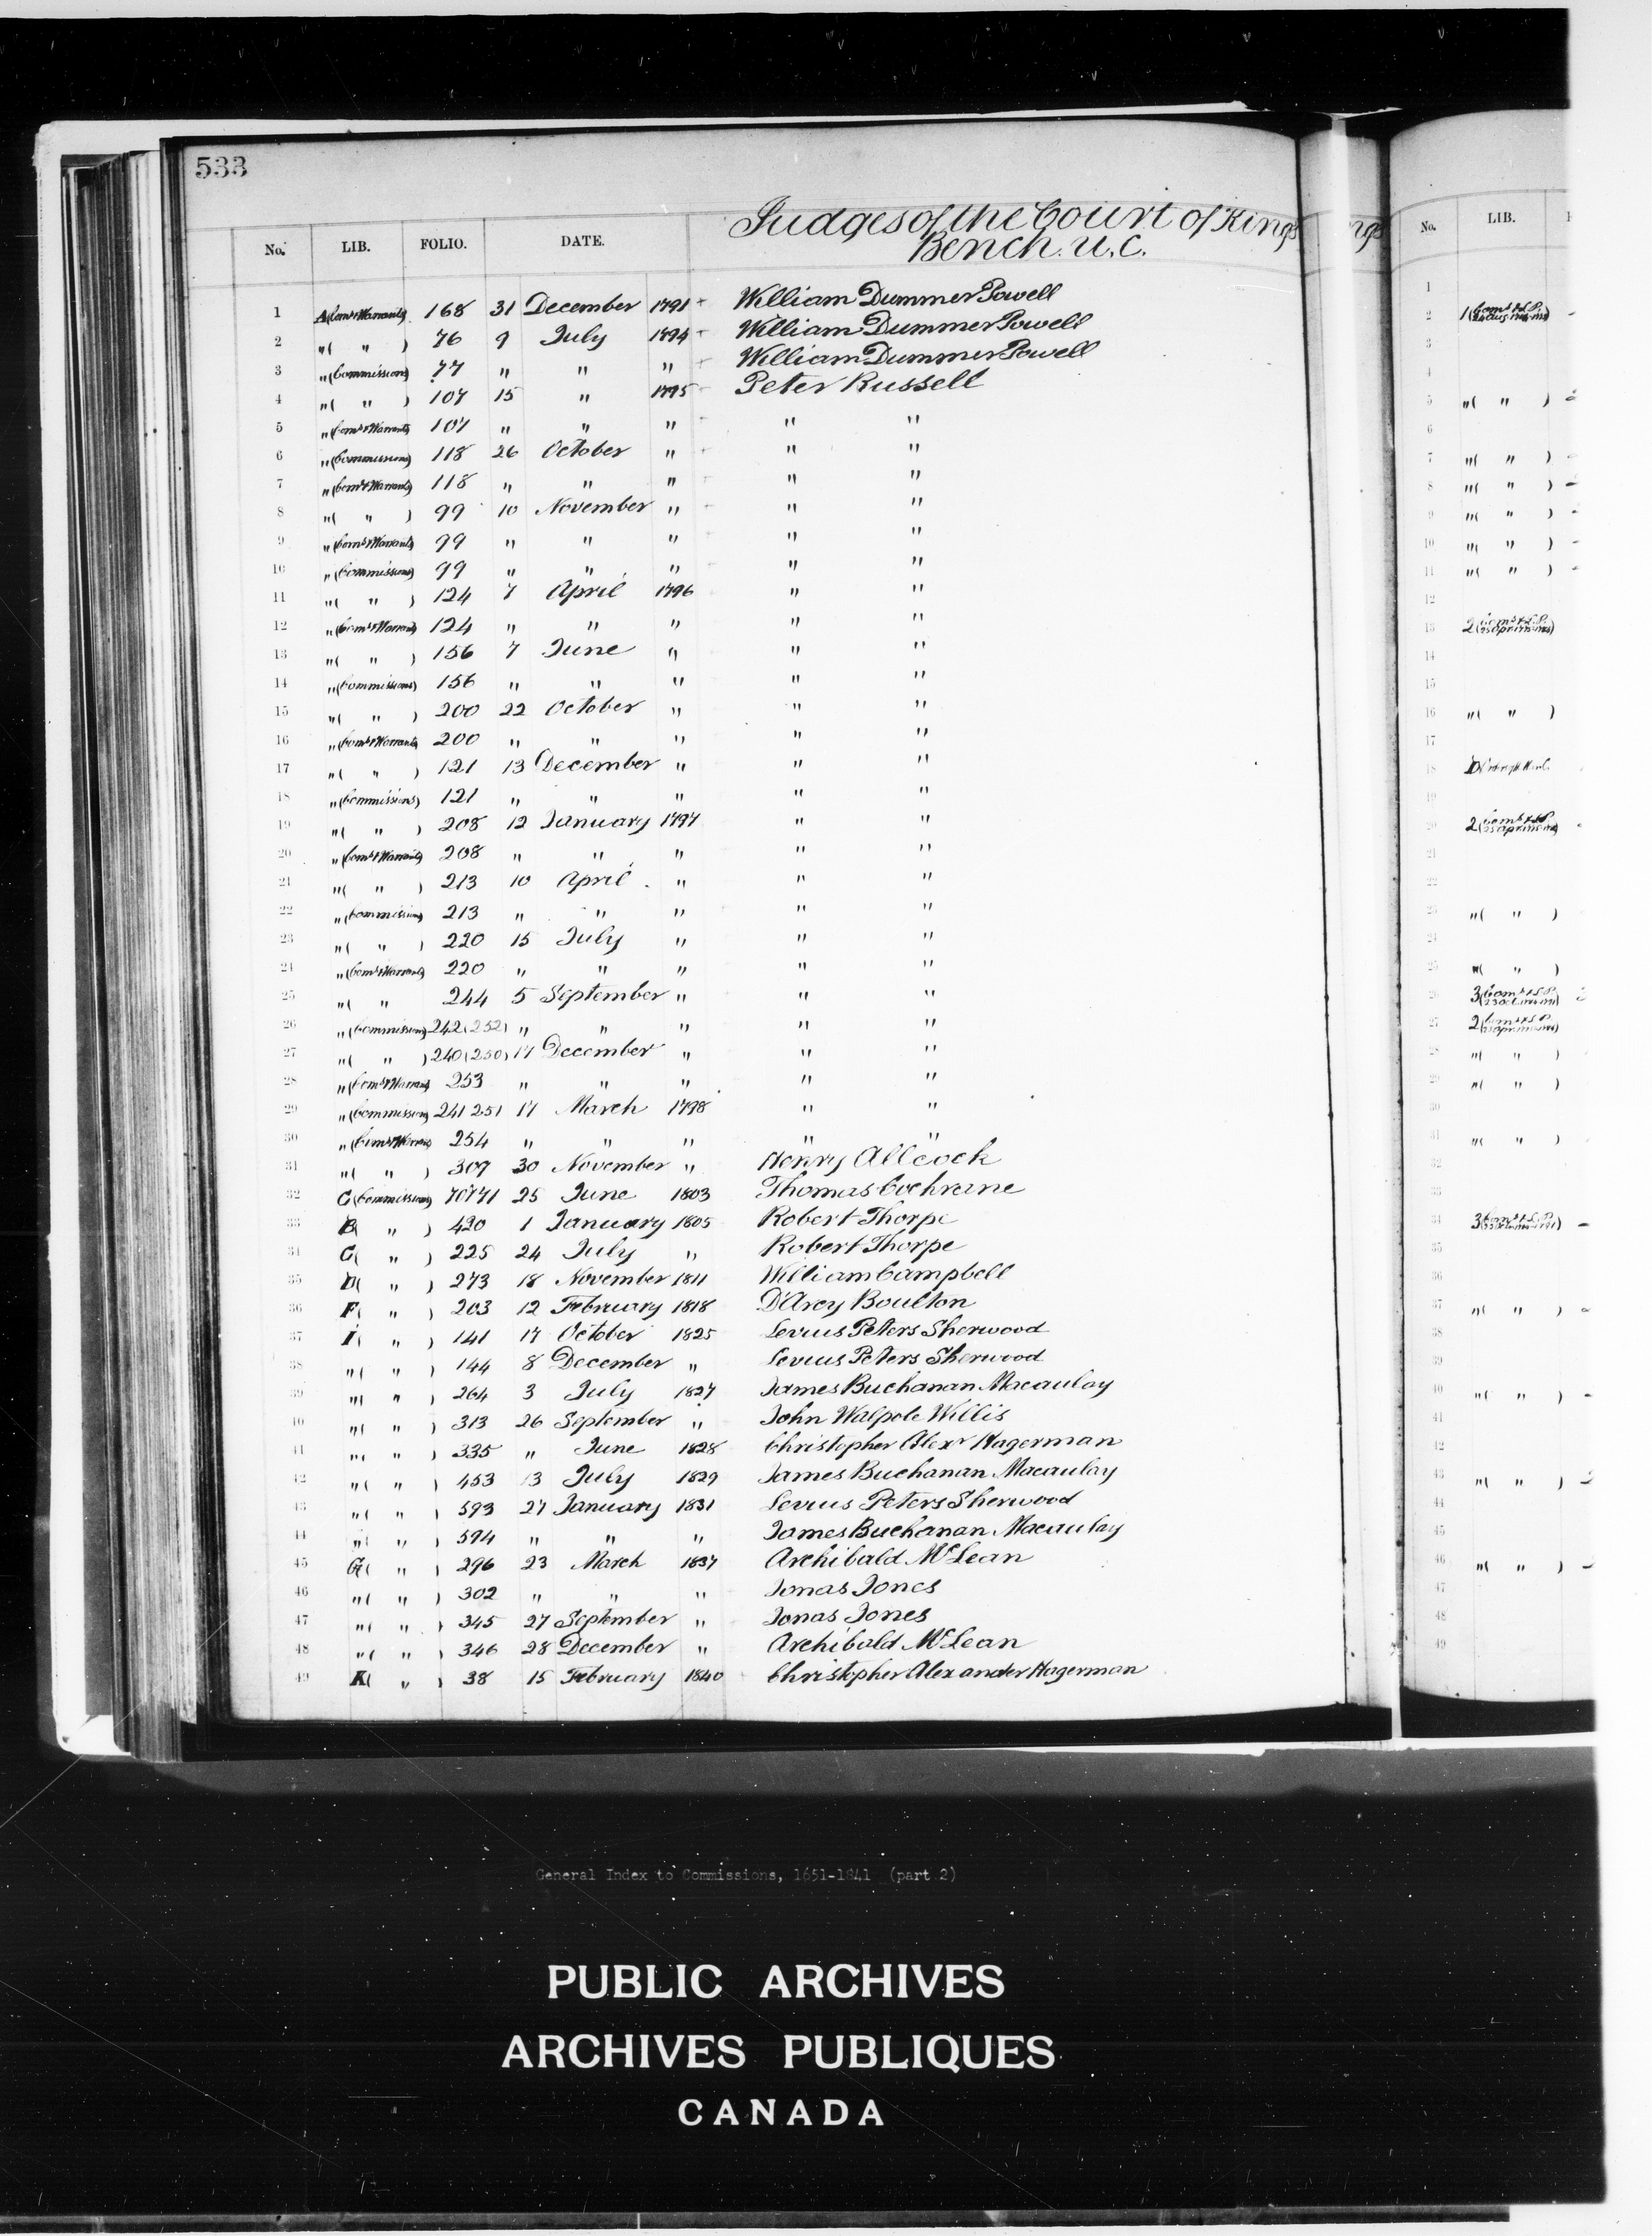 533
Judges of the Court of Kings
Bench. U.C.
No. LIB. FOLIO. DATE.
1 A (Coms & Warrants) 168 31 December 1791 William Dummer Powell
2 " ( " ) 76 9 July 1794 William Dummer Powell
3 " (Commissions) 77 " " " William Dummer Powell
4 " ( " ) 107 15 " 1795 Peter Russell
5 " (Coms & Warrants) 107 " " " " "
6 " (Commissions) 118 26 October " " "
7 " (Coms & Warrants) 118 " " " " "
8 " ( " ) 99 10 November " " "
9 " (Coms & Warrants) 99 " " " " "
10 " (Commissions) 99 " " " " "
11 " ( " ) 124 7 April 1796 " "
12 " (Coms & Warrants) 124 " " " " "
13 " ( " ) 156 7 June " " "
14 " (Commissions) 156 " " " " "
15 " ( " ) 200 22 October " " "
16 " (Coms & Warrants) 200 " " " " "
17 " ( " ) 121 13 December " " "
18 " (Commissions) 121 " " " " "
19 " ( " ) 208 12 January 1797 " "
20 " (Coms & Warrants) 208 " " " " "
21 " ( " ) 213 10 April " " "
22 " (Commissions) 213 " " " " "
23 " ( " ) 220 15 July " " "
24 " (Coms & Warrants) 220 " " " " "
25 " ( " 244 5 September " " "
26 " (Commissions) 242 (252) " " " " "
27 " ( " ) 240 (250) 17 December " " "
28 " (Coms & Warrants) 253 " " " " "
29 " (Commissions) 241 251 17 March 1798 " "
30 " (Coms & Warrants) 254 " " " " "
31 " ( " ) 307 30 November " Henry Allcock
32 C (Commissions) 70 771 25 June 1803 Thomas Cochrane
33 B ( " ) 420 1 January 1805 Robert Thorpe
34 C ( " ) 225 24 July " Robert Thorpe
35 D ( " ) 273 18 November 1811 William Campbell
36 F ( " ) 203 12 February 1818 D'Arcy Boulton
37 I ( " ) 141 17 October 1825 Levius Peters Sherwood
38 " ( " ) 144 8 December " Levius Peters Sherwood
39 " ( " ) 264 3 July 1827 James Buchanan Macaulay
40 " ( " ) 313 26 September " John Walpole Willis
41 " ( " ) 335 " June 1828 Christopher Alexr Hagerman
42 " ( " ) 453 13 July 1829 James Buchanan Macaulay
43 " ( " ) 593 27 January 1831 Levius Peters Sherwood
44 " ( " ) 594 " " " James Buchanan Macaulay
45 G ( " ) 296 23 March 1837 Archibald McLean
46 " ( " ) 302 " " " Jonas Jones
47 " ( " ) 345 27 September " Jonas Jones
48 " ( " ) 346 28 December " Archibald McLean
49 K ( " ) 38 15 February 1840 Christopher Alexander Hagerman
ngs
No. LIB.
1
2 1
3
4
5 " ( " )
6
7 " ( " )
8 " ( " )
9 " ( " )
10 " ( " )
11 " ( " )
12
13 2
14
15
16 " ( " )
17
18 D
19
20 2
21
22
23 " ( " )
24
25 " ( " )
26 3
27 2
28 " ( " )
29 " ( " )
30
31 " ( " )
32
33
34 3
35
36
37 " ( " )
38
39
40 " ( " )
41
42
43 " ( " )
44
45
46 " ( " )
47
48
49
General Index to Commissions, 1651-1841 (part 2)
PUBLIC ARCHIVES
ARCHIVES PUBLIQUES
CANADA